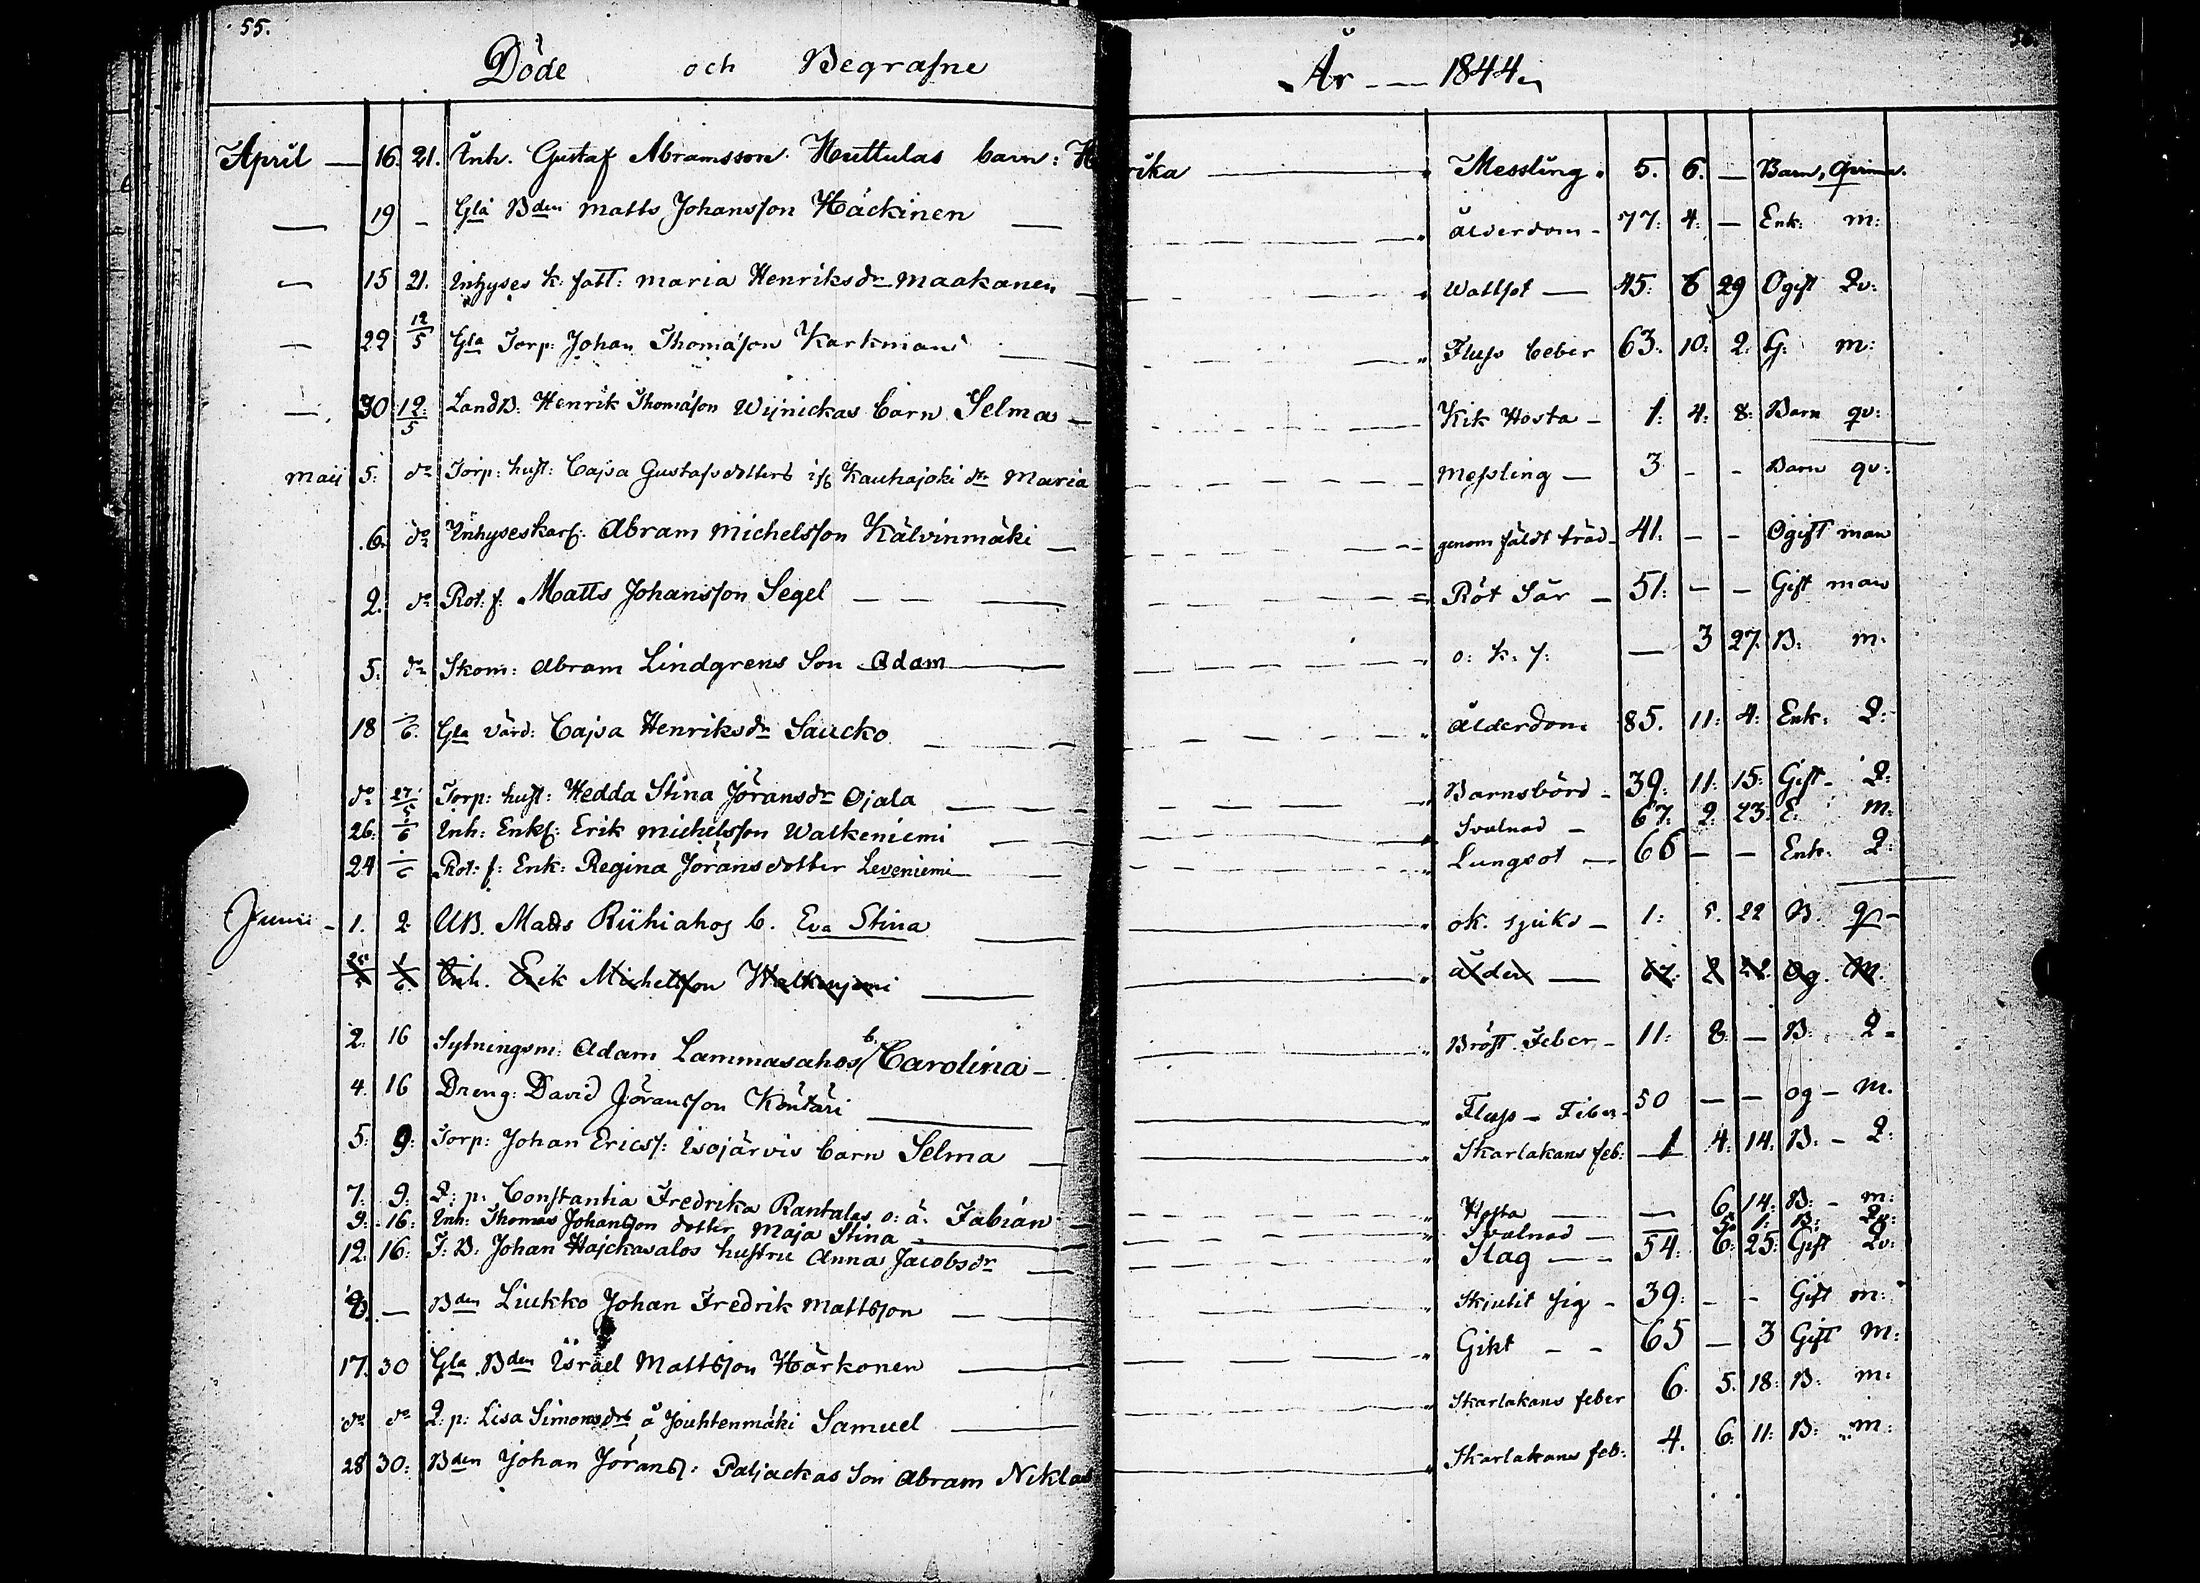 55.
Döde och Begrafne År 1844
April — 16. 21. Inh. Gustaf Abramsson Huttulas barn: H rika — Messling. 5. 6. — Barn, Qvinn.
— 19 – Gla Bden Matts Johansson Häckinen — Ålderdom – 77: 4: — Enk: m:
— 15 21. Inhyses k: fatt: Maria Henriksdr Maakanen — Wattsot — 45: 6 29 Ogift Qv:
— 22 12/5 Gla Torp: Johan Thomasson Karkmans — Fluss Ceber 63: 10: 2: G: m:
— 30 12:/5 LandB: Henrik Thomasson Wijnickas Carn Selma — Kik Hosta – 1: 4: 8: Barn qv:
Maij 5: do Torp: hust: Cajsa Gustafsdotters ifr Kauhajoki dtr Maria — Messling — 3 – – Barn qv:
6. do Inhyseskarl: Abram Michelsson Kälvinmäki — genom fäldt träd – 41. – – Ogift man
2. do Rot: f: Matts Johansson Segel — Röt Sår — 51: – – Gift man
5: do Skom: Abram Lindgrens Son Adam — o: k: s: — 3 27. B: m.
18 –/6. Gla Värd: Cajsa Henriksdr Saucko — Ålderdom 85. 11: 4: Enk: Q:
do 27/5 Torp: hust: Hedda Stina Jöransdr Ojala — Barnsbörd – 39: 11: 15: Gift – Q:
26: –/6 Inh: Enkl: Erik Michelsson Walkeniemi — Svalnad – 67: 2: 23: E: m:
24 –/6 Rot: f: Enk: Regina Jöransdotter Leveniemi — Lungsot — 66 – – Enk: Q:
Junii – 1. 2. UB. Matts Riihiahos b. Eva Stina — ok. sjukd – 1: 5. 22 B. q –
Inh. Erik Michelsson Walkenjemi — ålder — 67: 2 Og. M.
2. 16 Sytningsm: Adam Lammasahos b. Carolina — Bröst Feber – 11: 8: — B: Q =
4. 16 Dreng: David Jöransson Köntäri — Fluss – Feber – 50 — — og – M.
5: 9: Torp: Johan Ericss: Isojärvis Carn Selma — Skarlakans feb: 1 4: 14: B: – Q:
7: 9: Q: p: Constantia Fredrika Rantalas o: ä: Fabian — Hosta — — 6 14: B: – m:
9: 16: Inh: Thomas Johansson dotter Maja Stina — Svalnad — — 5 1: B: Qv:
12. 16: T: B: Johan Hajckasalos hustru Anna Jacobsdr — Slag — 54: 6: 25: Gift Qv:
8. — Bden Liukko Johan Fredrik Mattsson — Skjutit sig – 39: – – Gift m:
17. 30 Gla Bden Israel Mattsson Härkonen — Gikt – – 65 – 3 Gift M:
do do Q: p: Lisa Simonsdrs å Jouhtenmäki Samuel — Skarlakans feber 6. 5. 18: B: m:
28 30: Bden Johan Jöranss: Paljackas Son Abram Niklas — Skarlakans feb: 4. 6: 11: B: m: